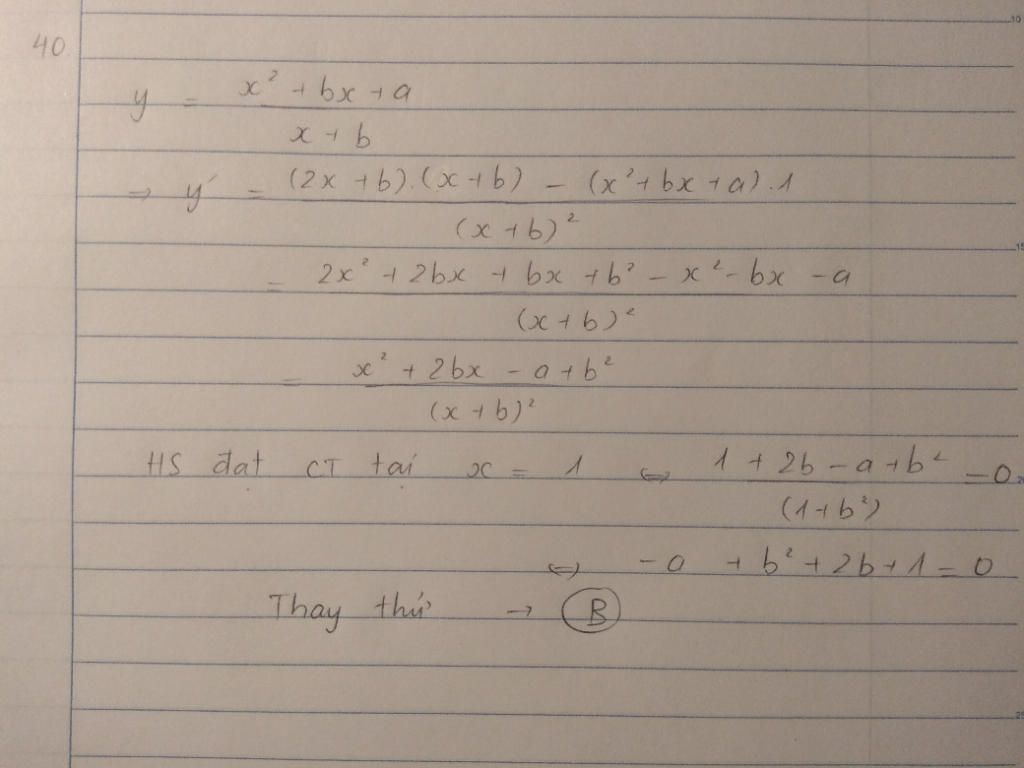 40.
y = (x² + bx + a) / (x + b)
⇒ y' = ((2x + b).(x + b) - (x² + bx + a).1) / (x + b)²
= (2x² + 2bx + bx + b² - x² - bx - a) / (x + b)²
= (x² + 2bx - a + b²) / (x + b)²
HS đạt CT tại x = 1 ⇔ (1 + 2b - a + b²) / (1 + b²) = 0
⇔ -a + b² + 2b + 1 = 0
Thay thứ → B
10
15
20
25